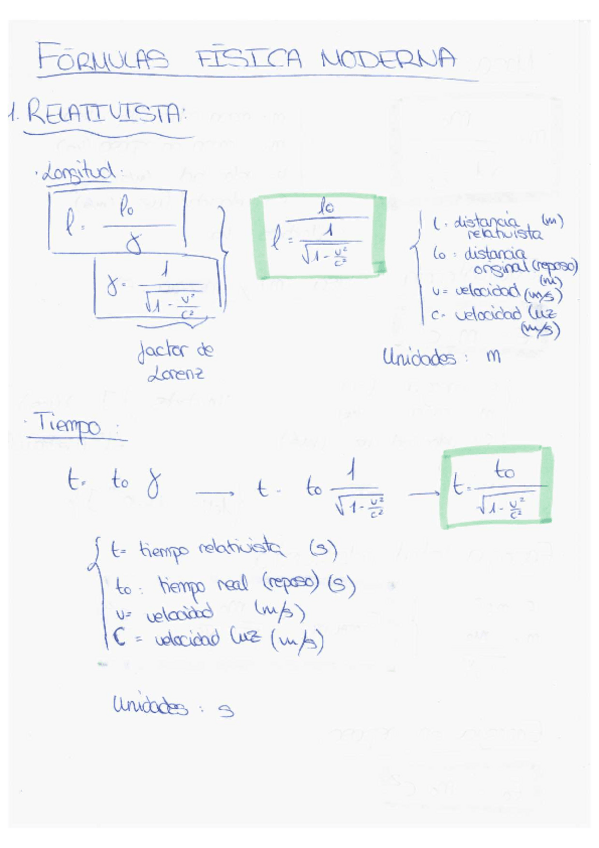 FÓRMULAS FÍSICA MODERNA
1. RELATIVISTA:
· Longitud:
l = lo / γ
γ = 1 / √(1 - v²/c²)
factor de
Lorenz
l = lo / (1 / √(1 - v²/c²))
l = distancia (m)
relativista
lo = distancia
original (reposo)
(m)
v = velocidad (m/s)
c = velocidad luz
(m/s)
Unidades: m
· Tiempo:
t = to γ → t = to 1 / √(1 - v²/c²) → t = to / √(1 - v²/c²)
t = tiempo relativista (s)
to: tiempo real (reposo) (s)
v = velocidad (m/s)
C = velocidad luz (m/s)
Unidades: s